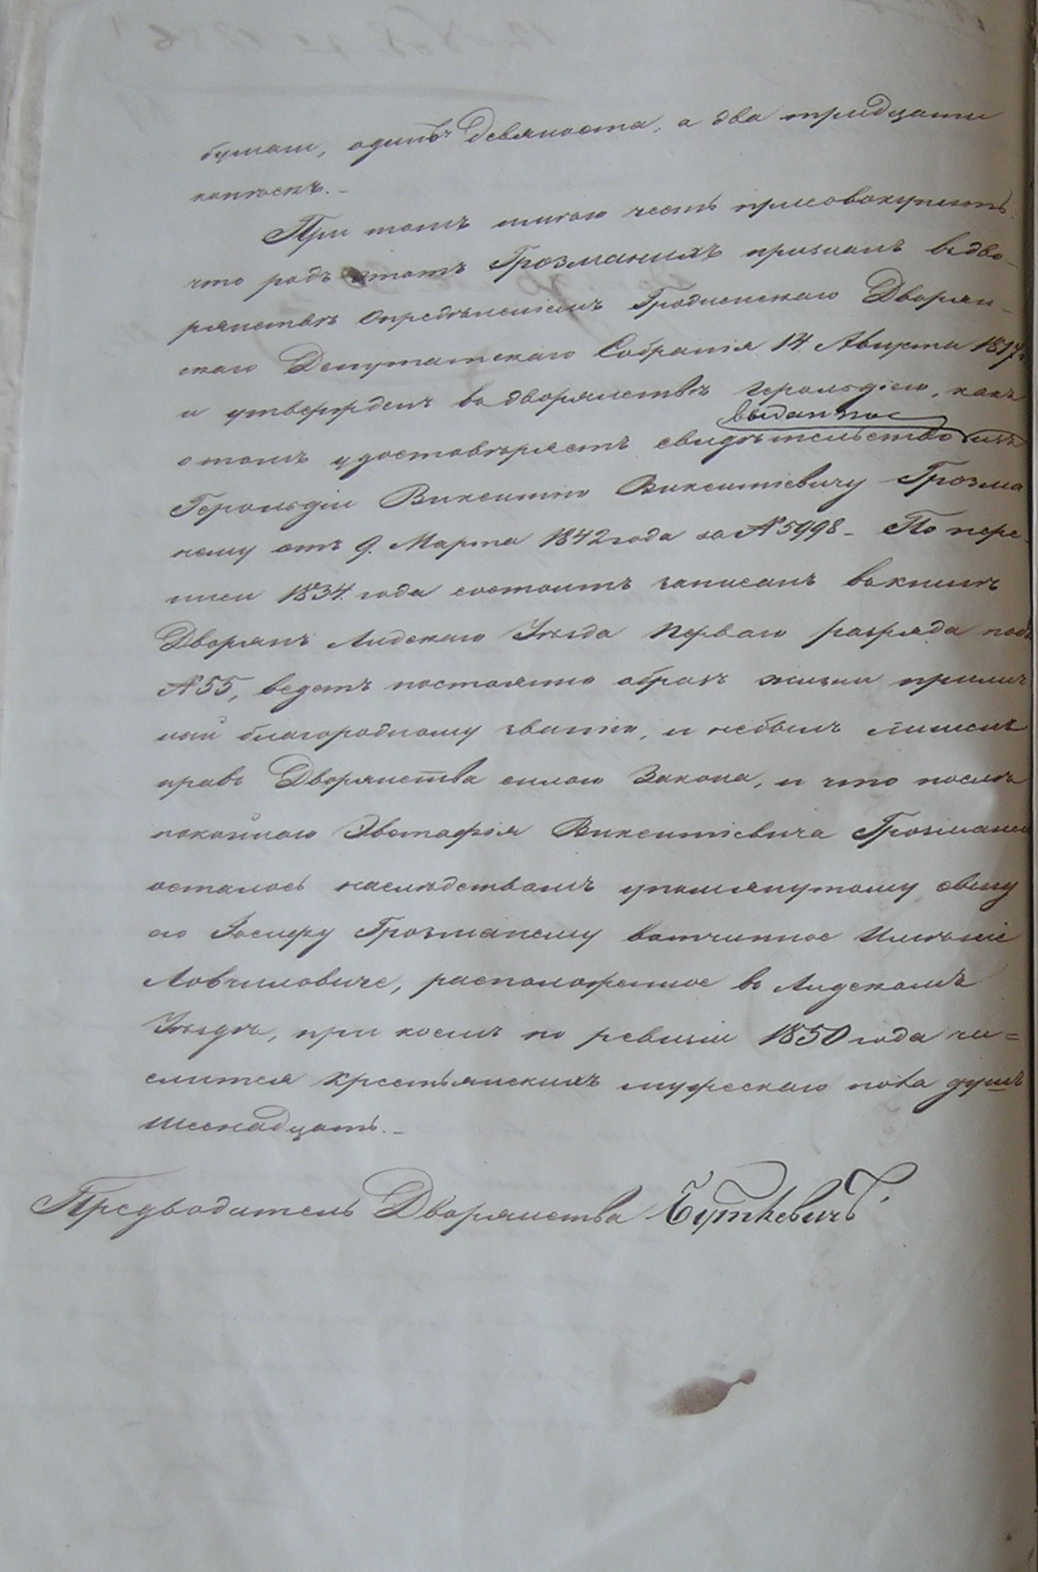 бумаги, одинъ девяноста, а два тридцати
копѣекъ. –
При томъ имѣю честь присовокупить
что родъ этотъ Грозманихъ признанъ въ дво-
рянствѣ Опредѣленіемъ Гродненскаго Дворян-
скаго Депутатскаго Собранія 14 Августа 1817
и утвержденъ въ дворянствѣ герольдіею, какъ
выданное
о томъ удостовѣряетъ свидѣтельство изъ
Герольдіи Викентію Викентіевичу Грозма
ному отъ 9. Марта 1842 года за № 5998 – По пере-
писи 1834 года состоитъ записанъ въ книгѣ
Дворянъ Лидскаго Уѣзда перваго разряда подъ
№ 55, ведетъ постоянно образъ жизни прилич
ный благородному званію, и небылъ лишенъ
правъ Дворянства силою Закона, и что послѣ
покойнаго Эвстафія Викентіевича Грозмани
осталось наслѣдствомъ упомянутому сыну
его Іосифу Грозманому вотчинное Имѣніе
Ловчиловиче, расположенное въ Лидскомъ
Уѣздѣ, при коемъ по ревизіи 1850 года чи=
слится крестьянскихъ мужескаго пола душъ
шеснадцать. –
Предводитель Дворянства Буткевичъ